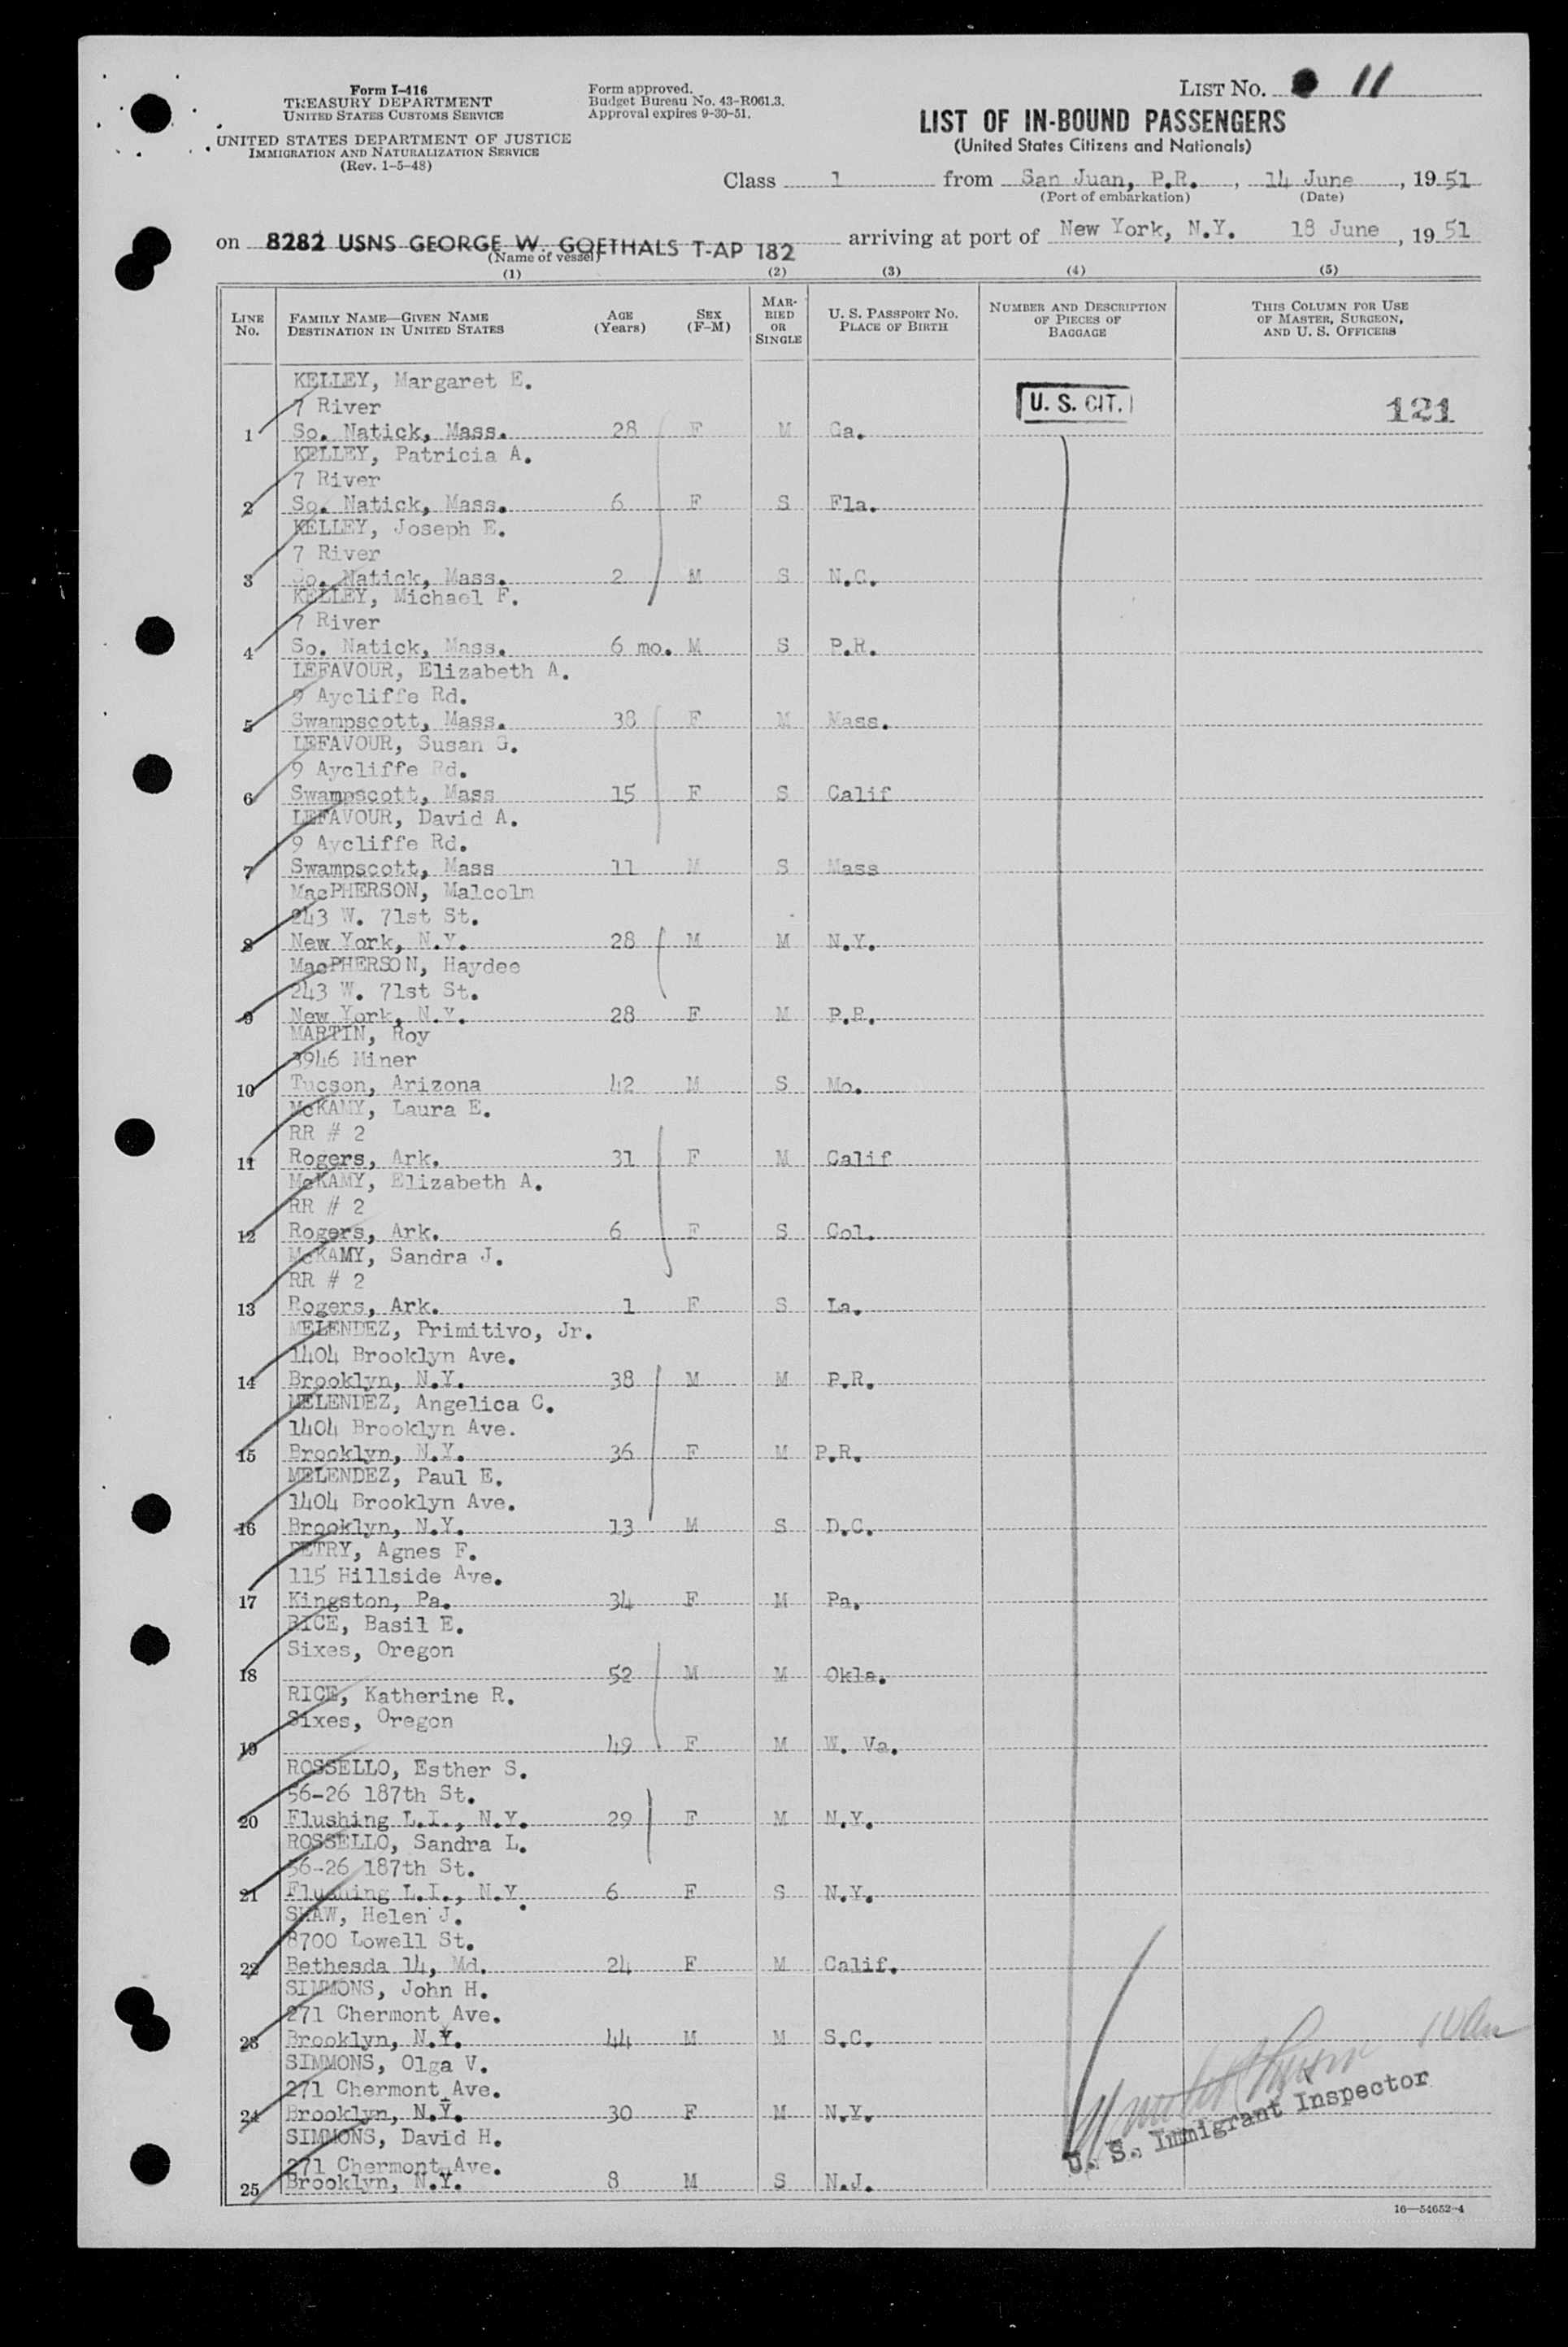 Form I-416
TREASURY DEPARTMENT
UNITED STATES CUSTOMS SERVICE
UNITED STATES DEPARTMENT OF JUSTICE
IMMIGRATION AND NATURALIZATION SERVICE
(Rev. 1-5-48)
Form approved.
Budget Bureau No. 43-R061.3.
Approval expires 9-30-51.
LIST NO. 11
LIST OF IN-BOUND PASSENGERS
(United States Citizens and Nationals)
Class 1 from San Juan, P.R., 14 June, 1951
(Port of embarkation) (Date)
on 8282 USNS GEORGE W. GOETHALS T-AP 182 arriving at port of New York, N.Y. 18 June, 1951
(Name of vessel)
(1) (2) (3) (4) (5)
LINE No. FAMILY NAME—GIVEN NAME DESTINATION IN UNITED STATES AGE (Years) SEX (F-M) MARRIED OR SINGLE U. S. PASSPORT NO. PLACE OF BIRTH NUMBER AND DESCRIPTION OF PIECES OF BAGGAGE THIS COLUMN FOR USE OF MASTER, SURGEON, AND U. S. OFFICERS
KELLEY, Margaret E.
7 River U. S. CIT. 121
1 So. Natick, Mass. 28 F M Ga.
KELLEY, Patricia A.
7 River
2 So. Natick, Mass. 6 F S Fla.
KELLEY, Joseph E.
7 River
3 So. Natick, Mass. 2 M S N.C.
KELLEY, Michael F.
7 River
4 So. Natick, Mass. 6 mo. M S P.R.
LEFAVOUR, Elizabeth A.
9 Aycliffe Rd.
5 Swampscott, Mass. 38 F M Mass.
LEFAVOUR, Susan G.
9 Aycliffe Rd.
6 Swampscott, Mass 15 F S Calif
LEFAVOUR, David A.
9 Aycliffe Rd.
7 Swampscott, Mass 11 M S Mass
MacPHERSON, Malcolm
243 W. 71st St.
8 New York, N.Y. 28 M M N.Y.
MacPHERSON, Haydee
243 W. 71st St.
9 New York, N.Y. 28 F M P.R.
MARTIN, Roy
3946 Miner
10 Tucson, Arizona 42 M S Mo.
McKAMY, Laura E.
RR # 2
11 Rogers, Ark. 31 F M Calif
McKAMY, Elizabeth A.
RR # 2
12 Rogers, Ark. 6 F S Col.
McKAMY, Sandra J.
RR # 2
13 Rogers, Ark. 1 F S La.
MELENDEZ, Primitivo, Jr.
1404 Brooklyn Ave.
14 Brooklyn, N.Y. 38 M M P.R.
MELENDEZ, Angelica C.
1404 Brooklyn Ave.
15 Brooklyn, N.Y. 36 F M P.R.
MELENDEZ, Paul E.
1404 Brooklyn Ave.
16 Brooklyn, N.Y. 13 M S D.C.
PETRY, Agnes F.
115 Hillside Ave.
17 Kingston, Pa. 34 F M Pa.
RICE, Basil E.
Sixes, Oregon
18 52 M M Okla.
RICE, Katherine R.
Sixes, Oregon
19 49 F M W. Va.
ROSSELLO, Esther S.
56-26 187th St.
20 Flushing L.I., N.Y. 29 F M N.Y.
ROSSELLO, Sandra L.
56-26 187th St.
21 Flushing L.I., N.Y. 6 F S N.Y.
SHAW, Helen J.
8700 Lowell St.
22 Bethesda 14, Md. 24 F M Calif.
SIMMONS, John H.
271 Chermont Ave.
23 Brooklyn, N.Y. 44 M M S.C.
SIMMONS, Olga V.
271 Chermont Ave.
24 Brooklyn, N.Y. 30 F M N.Y.
SIMMONS, David H.
271 Chermont Ave.
25 Brooklyn, N.Y. 8 M S N.J.
U. S. Immigrant Inspector
16—54652-4